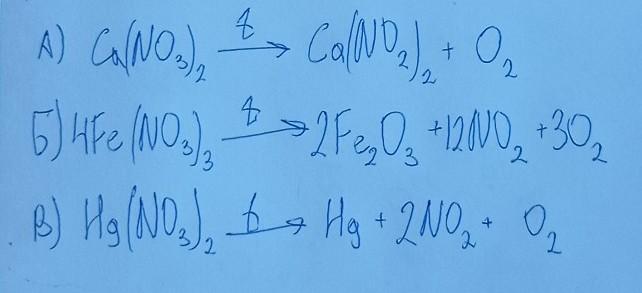 А) Ca(NO₃)₂ —t→ Ca(NO₂)₂ + O₂
Б) 4Fe(NO₃)₃ —t→ 2Fe₂O₃ + 12NO₂ + 3O₂
В) Hg(NO₃)₂ —t→ Hg + 2NO₂ + O₂